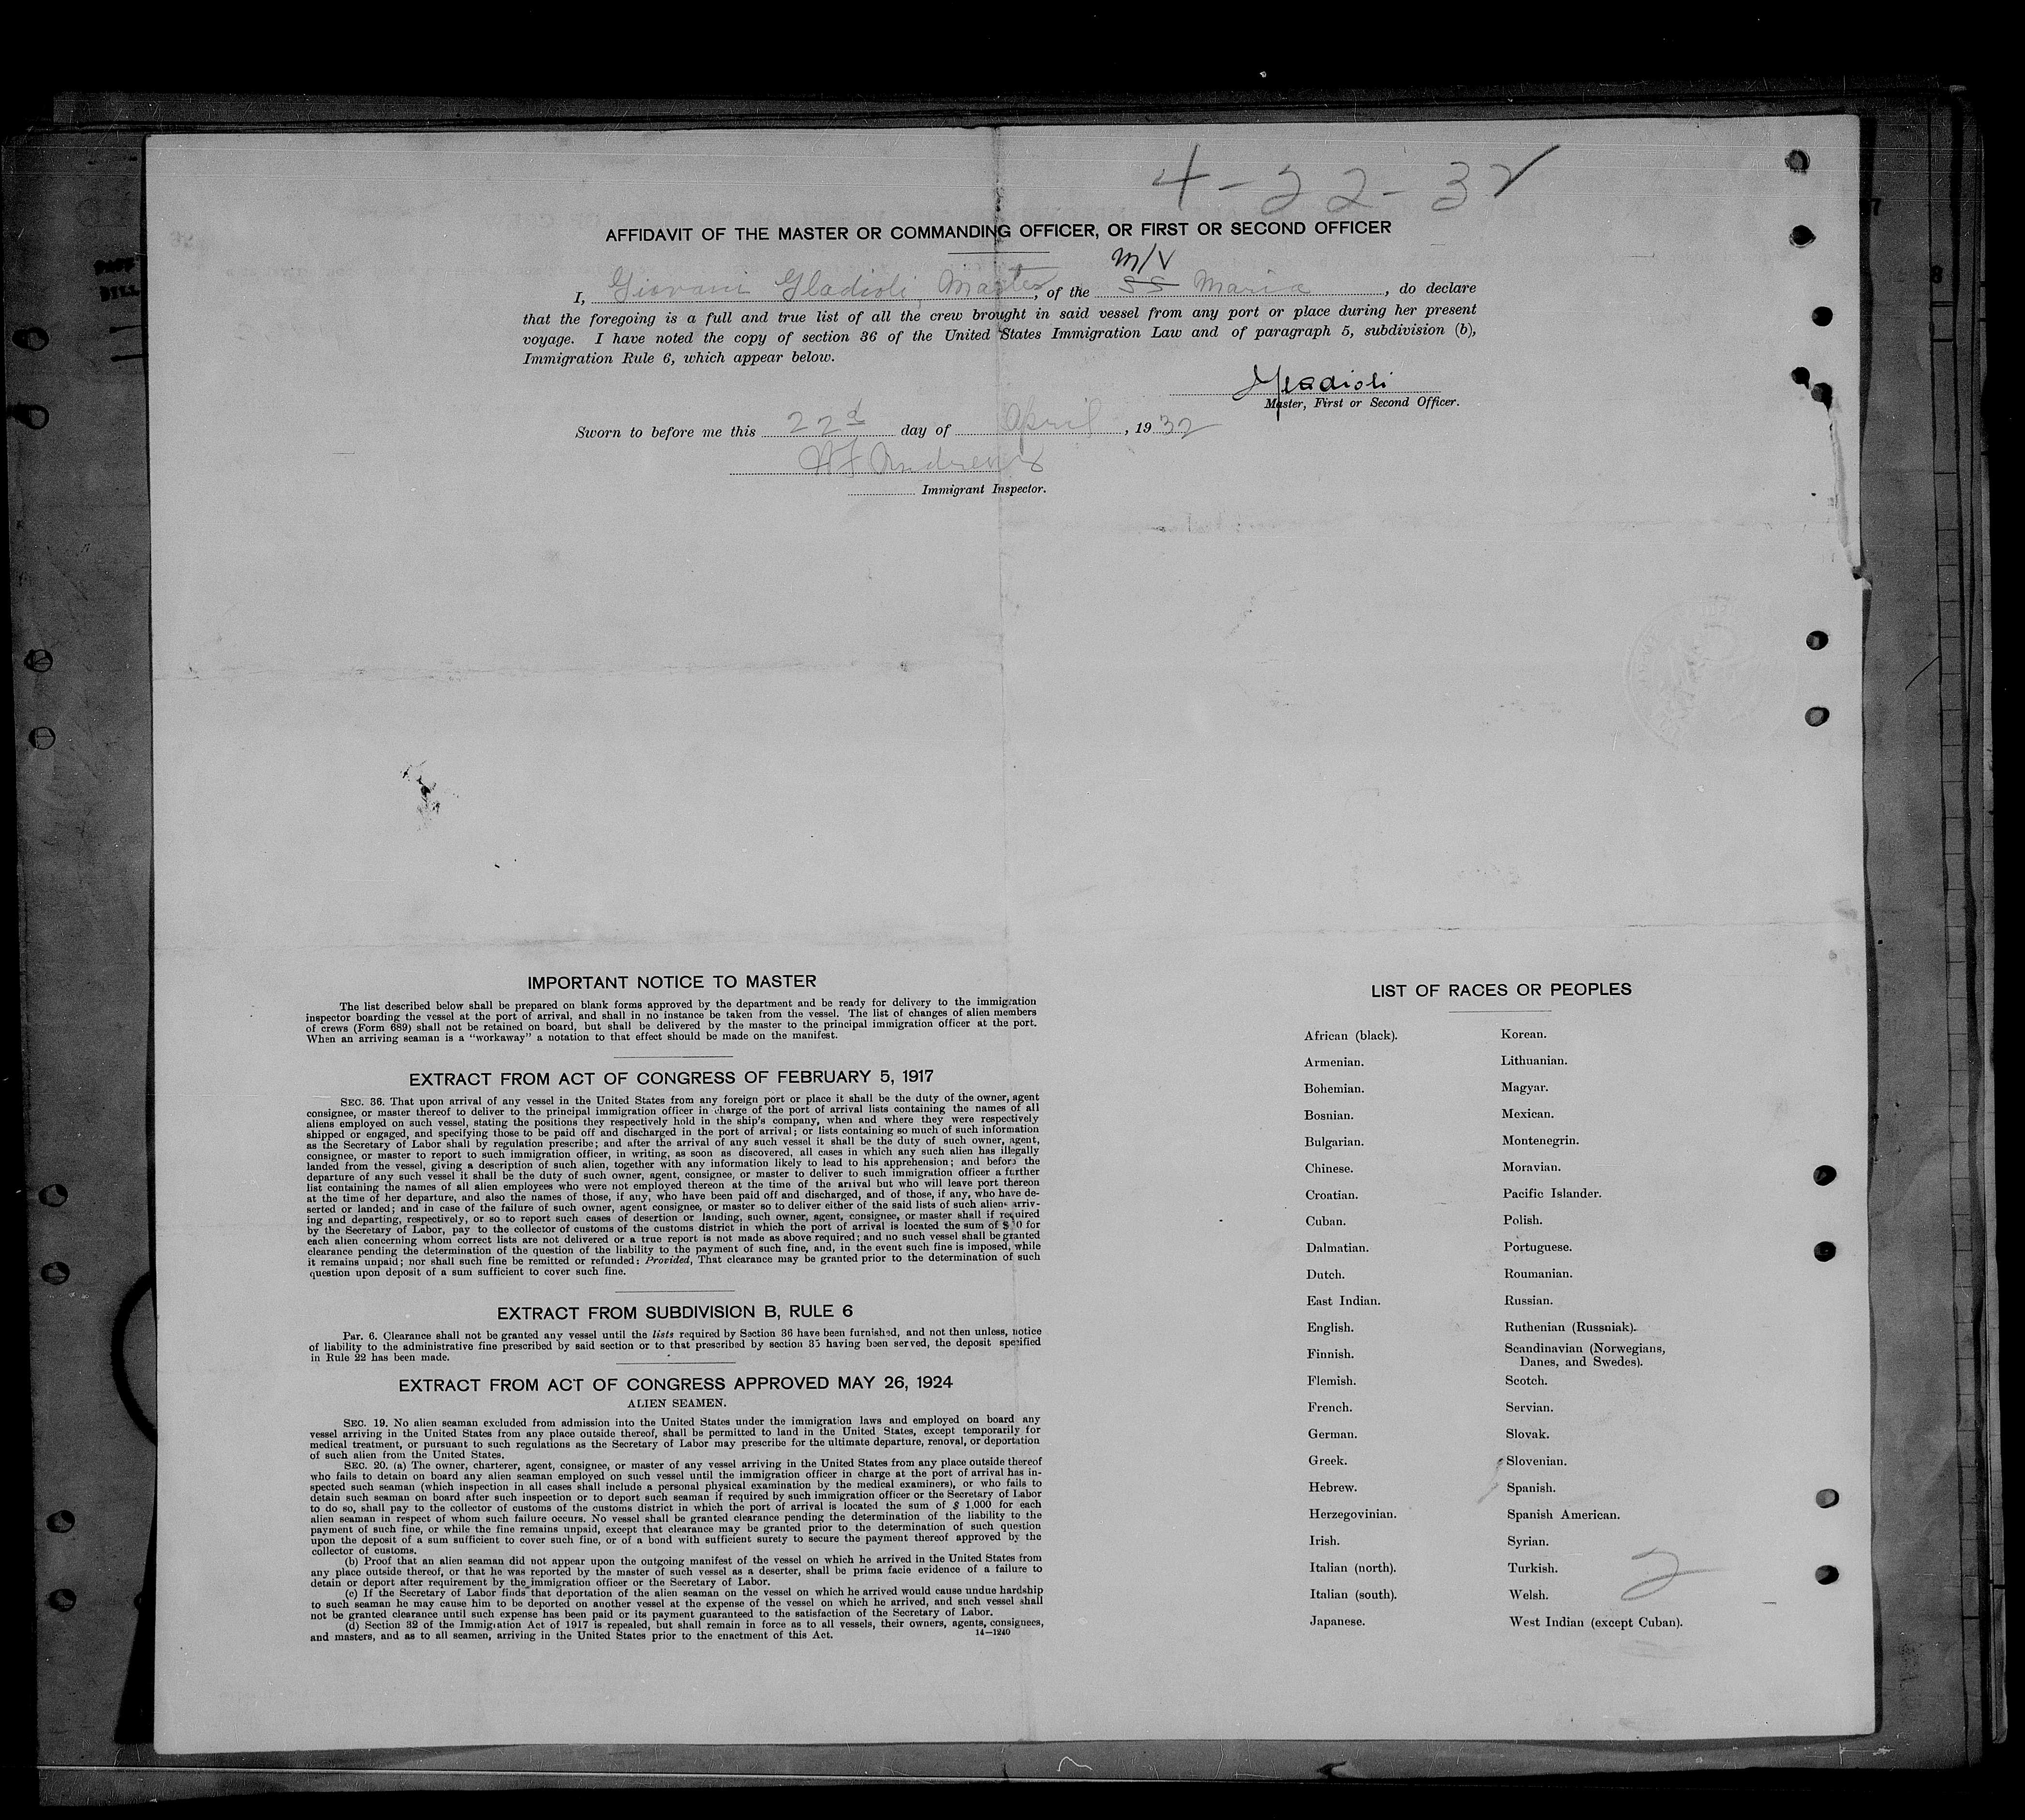 4-22-32
AFFIDAVIT OF THE MASTER OR COMMANDING OFFICER, OR FIRST OR SECOND OFFICER
M/V
I, Giovani Gladioli, Master, of the SS Maria, do declare
that the foregoing is a full and true list of all the crew brought in said vessel from any port or place during her present
voyage. I have noted the copy of section 36 of the United States Immigration Law and of paragraph 5, subdivision (b),
Immigration Rule 6, which appear below.
Master, First or Second Officer.
Sworn to before me this 22d day of April, 1932
Andrews
Immigrant Inspector.
IMPORTANT NOTICE TO MASTER
The list described below shall be prepared on blank forms approved by the department and be ready for delivery to the immigration
inspector boarding the vessel at the port of arrival, and shall in no instance be taken from the vessel. The list of changes of alien members
of crews (Form 689) shall not be retained on board, but shall be delivered by the master to the principal immigration officer at the port.
When an arriving seaman is a "workaway" a notation to that effect should be made on the manifest.
EXTRACT FROM ACT OF CONGRESS OF FEBRUARY 5, 1917
SEC. 36. That upon arrival of any vessel in the United States from any foreign port or place it shall be the duty of the owner, agent
consignee, or master thereof to deliver to the principal immigration officer in charge of the port of arrival lists containing the names of all
aliens employed on such vessel, stating the positions they respectively hold in the ship's company, when and where they were respectively
shipped or engaged, and specifying those to be paid off and discharged in the port of arrival; or lists containing so much of such information
as the Secretary of Labor shall by regulation prescribe; and after the arrival of any such vessel it shall be the duty of such owner, agent,
consignee, or master to report to such immigration officer, in writing, as soon as discovered, all cases in which any such alien has illegally
landed from the vessel, giving a description of such alien, together with any information likely to lead to his apprehension; and before the
departure of any such vessel it shall be the duty of such owner, agent, consignee, or master to deliver to such immigration officer a further
list containing the names of all alien employees who were not employed thereon at the time of the arrival but who will leave port thereon
at the time of her departure, and also the names of those, if any, who have been paid off and discharged, and of those, if any, who have de-
serted or landed; and in case of the failure of such owner, agent consignee, or master so to deliver either of the said lists of such aliens arriv-
ing and departing, respectively, or so to report such cases of desertion or landing, such owner, agent, consignee, or master shall if required
by the Secretary of Labor, pay to the collector of customs of the customs district in which the port of arrival is located the sum of $10 for
each alien concerning whom correct lists are not delivered or a true report is not made as above required; and no such vessel shall be granted
clearance pending the determination of the question of the liability to the payment of such fine, and, in the event such fine is imposed, while
it remains unpaid; nor shall such fine be remitted or refunded: Provided, That clearance may be granted prior to the determination of such
question upon deposit of a sum sufficient to cover such fine.
EXTRACT FROM SUBDIVISION B, RULE 6
Par. 6. Clearance shall not be granted any vessel until the lists required by Section 36 have been furnished, and not then unless, notice
of liability to the administrative fine prescribed by said section or to that prescribed by section 35 having been served, the deposit specified
in Rule 22 has been made.
EXTRACT FROM ACT OF CONGRESS APPROVED MAY 26, 1924
ALIEN SEAMEN.
SEC. 19. No alien seaman excluded from admission into the United States under the immigration laws and employed on board any
vessel arriving in the United States from any place outside thereof, shall be permitted to land in the United States, except temporarily for
medical treatment, or pursuant to such regulations as the Secretary of Labor may prescribe for the ultimate departure, removal, or deportation
of such alien from the United States.
SEC. 20. (a) The owner, charterer, agent, consignee, or master of any vessel arriving in the United States from any place outside thereof
who fails to detain on board any alien seaman employed on such vessel until the immigration officer in charge at the port of arrival has in-
spected such seaman (which inspection in all cases shall include a personal physical examination by the medical examiners), or who fails to
detain such seaman on board after such inspection or to deport such seaman if required by such immigration officer or the Secretary of Labor
to do so, shall pay to the collector of customs of the customs district in which the port of arrival is located the sum of $ 1,000 for each
alien seaman in respect of whom such failure occurs. No vessel shall be granted clearance pending the determination of the liability to the
payment of such fine, or while the fine remains unpaid, except that clearance may be granted prior to the determination of such question
upon the deposit of a sum sufficient to cover such fine, or of a bond with sufficient surety to secure the payment thereof approved by the
collector of customs.
(b) Proof that an alien seaman did not appear upon the outgoing manifest of the vessel on which he arrived in the United States from
any place outside thereof, or that he was reported by the master of such vessel as a deserter, shall be prima facie evidence of a failure to
detain or deport after requirement by the immigration officer or the Secretary of Labor.
(c) If the Secretary of Labor finds that deportation of the alien seaman on the vessel on which he arrived would cause undue hardship
to such seaman he may cause him to be deported on another vessel at the expense of the vessel on which he arrived, and such vessel shall
not be granted clearance until such expense has been paid or its payment guaranteed to the satisfaction of the Secretary of Labor.
(d) Section 32 of the Immigration Act of 1917 is repealed, but shall remain in force as to all vessels, their owners, agents, consignees,
and masters, and as to all seamen, arriving in the United States prior to the enactment of this Act.
14—1240
LIST OF RACES OR PEOPLES
African (black).
Armenian.
Bohemian.
Bosnian.
Bulgarian.
Chinese.
Croatian.
Cuban.
Dalmatian.
Dutch.
East Indian.
English.
Finnish.
Flemish.
French.
German.
Greek.
Hebrew.
Herzegovinian.
Irish.
Italian (north).
Italian (south).
Japanese.
Korean.
Lithuanian.
Magyar.
Mexican.
Montenegrin.
Moravian.
Pacific Islander.
Polish.
Portuguese.
Roumanian.
Russian.
Ruthenian (Russniak).
Scandinavian (Norwegians,
Danes, and Swedes).
Scotch.
Servian.
Slovak.
Slovenian.
Spanish.
Spanish American.
Syrian.
Turkish.
Welsh.
West Indian (except Cuban).
2